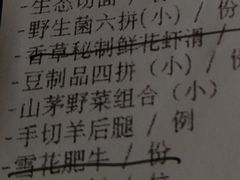 -生态切面 /
-野生菌六拼(小) / 份
-香草秘制鲜花虾滑 /
-豆制品四拼（小）/ 份
-山茅野菜组合（小）
-手切羊后腿 / 例
-雪花肥牛 / 份